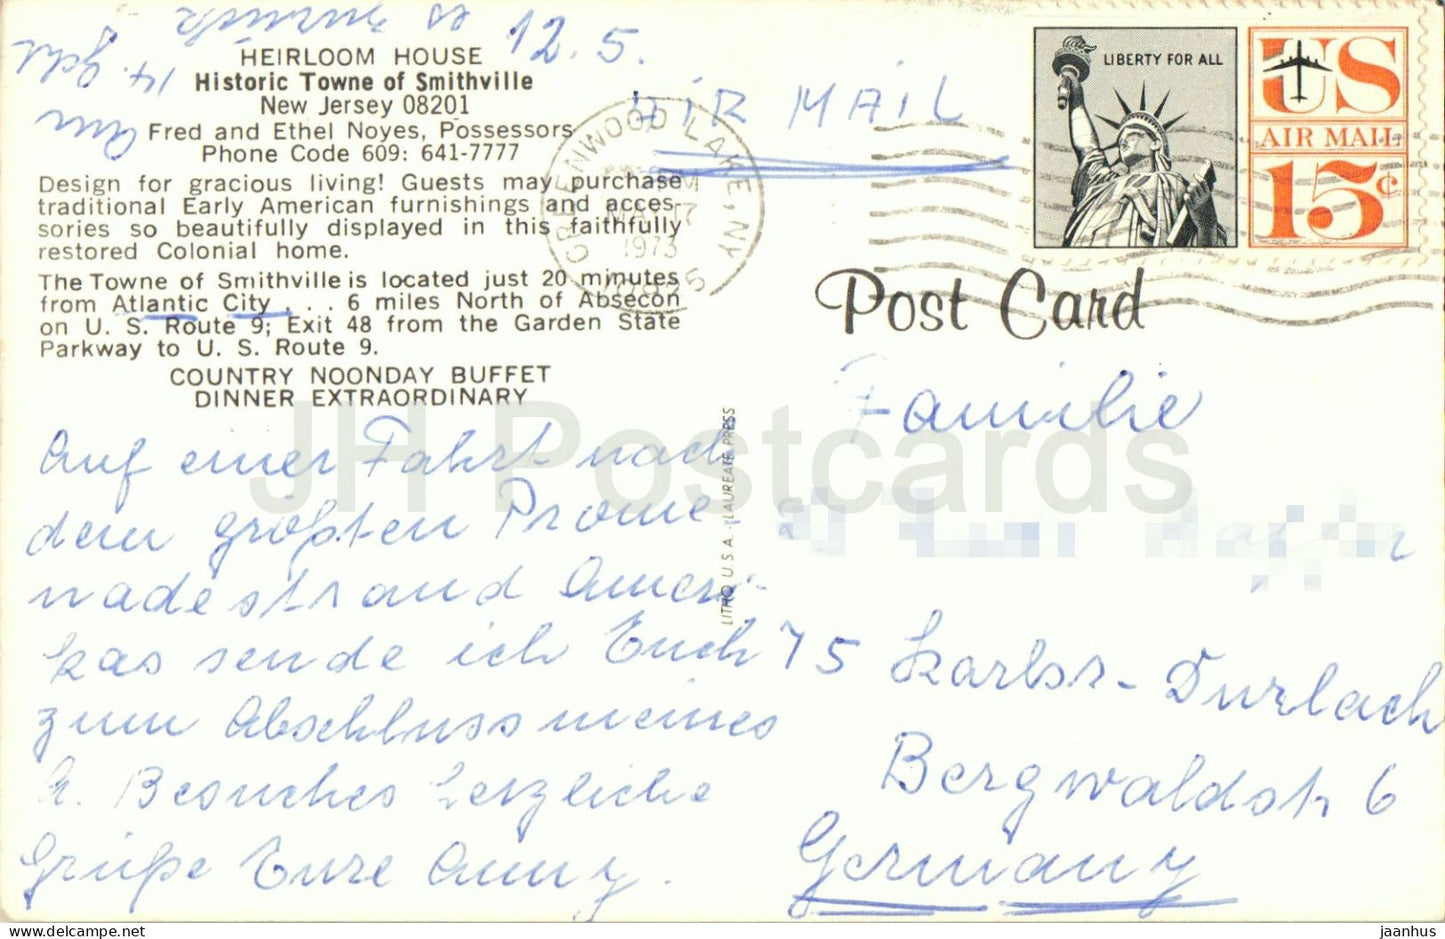 es zurück
Am 14. geht
12.5.
HEIRLOOM HOUSE
Historic Towne of Smithville
New Jersey 08201
Fred and Ethel Noyes, Possessors
Phone Code 609: 641-7777
Design for gracious living! Guests may purchase
traditional Early American furnishings and acces-
sories so beautifully displayed in this faithfully
restored Colonial home.
The Towne of Smithville is located just 20 minutes
from Atlantic City . . . 6 miles North of Absecon
on U. S. Route 9; Exit 48 from the Garden State
Parkway to U. S. Route 9.
COUNTRY NOONDAY BUFFET
DINNER EXTRAORDINARY
Auf einer Fahrt nach
dem größten Prome
nadestrand Ameri-
kas sende ich Euch
zum Abschluss meines
Besuches herzliche
Grüße Eure Anny.
AIR MAIL
GREENWOOD LAKE, NY
MAY 17
1973
LIBERTY FOR ALL
US
AIR MAIL
15¢
Post Card
LITHO U.S.A. LAUREATE PRESS
Familie
75 Karlsr-Durlach
Bergwaldstr 6
Germany
JH Postcards
jaanhus © delcampe.net